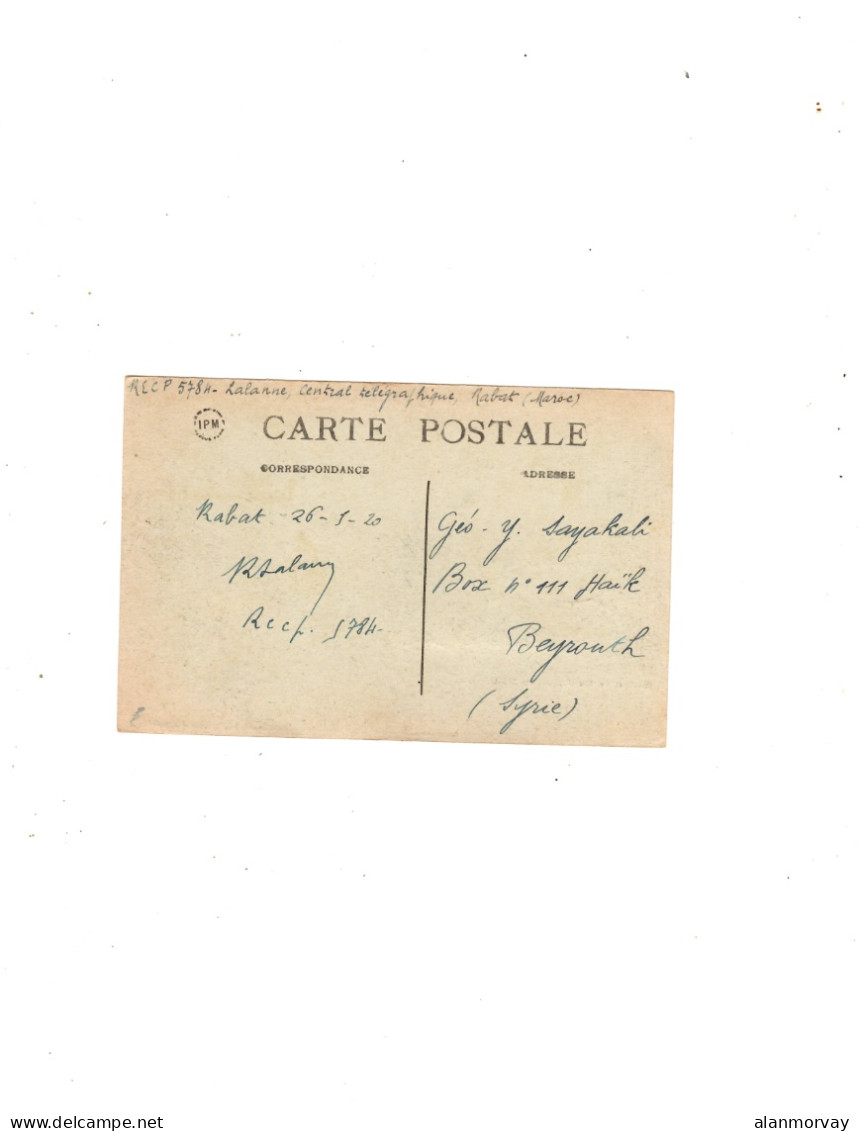 RECP 5784- Lalanne, Central telégraphique, Rabat (Maroc)
IPM
CARTE POSTALE
CORRESPONDANCE
ADRESSE
Rabat 26-5-20
RLalanne
Recp. 5784-
Géo. Y. Sayakali
Box n° 111 Haïk
Beyrouth
(Syrie)
delcampe.net
alanmorvay